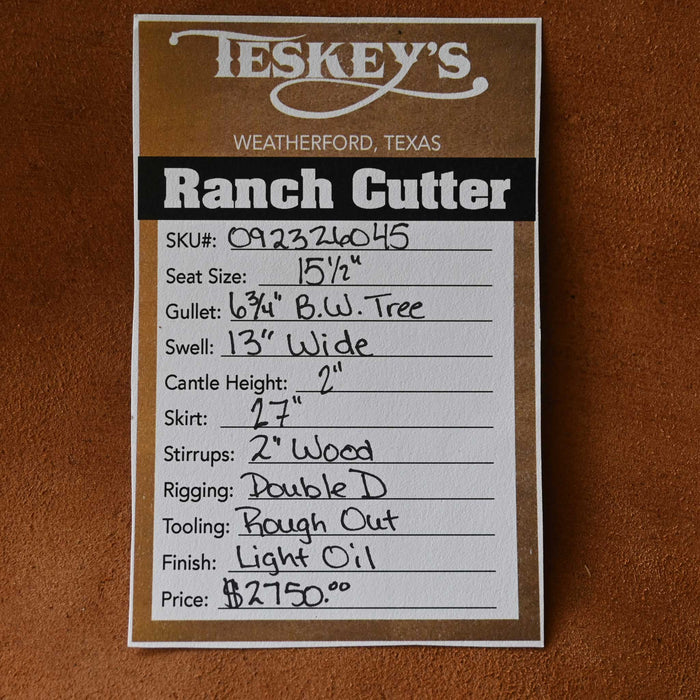 TESKEY'S
WEATHERFORD, TEXAS
Ranch Cutter
SKU#: 092326045
Seat Size: 15½"
Gullet: 6¾" B.W. Tree
Swell: 13" Wide
Cantle Height: 2"
Skirt: 27"
Stirrups: 2" Wood
Rigging: Double D
Tooling: Rough Out
Finish: Light Oil
Price: $2750.00